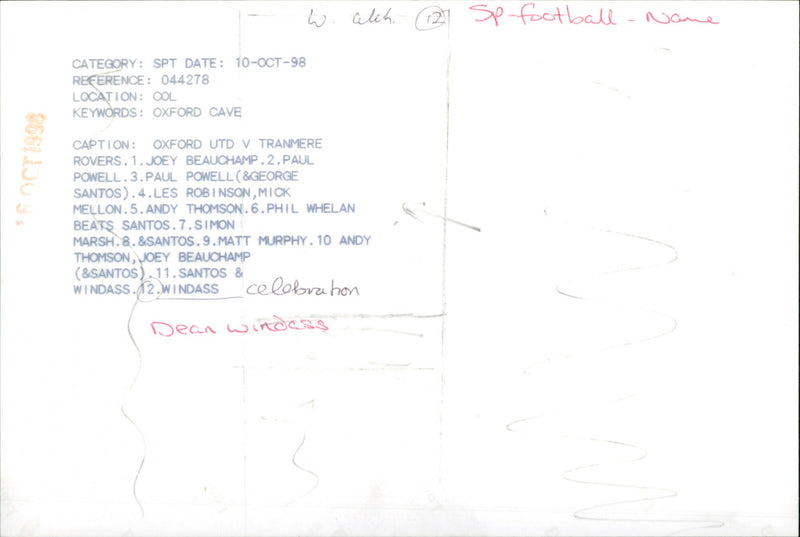 W. 12 Sp-football - Name
CATEGORY: SPT DATE: 10-OCT-98
REFERENCE: 044278
LOCATION: COL
KEYWORDS: OXFORD CAVE
CAPTION: OXFORD UTD V TRANMERE
ROVERS.1.JOEY BEAUCHAMP.2.PAUL
POWELL.3.PAUL POWELL(&GEORGE
SANTOS).4.LES ROBINSON,MICK
MELLON.5.ANDY THOMSON.6.PHIL WHELAN
BEATS SANTOS.7.SIMON
MARSH.8.&SANTOS.9.MATT MURPHY.10 ANDY
THOMSON,JOEY BEAUCHAMP
(&SANTOS).11.SANTOS &
WINDASS.12.WINDASS celebration
Dean Windass
OCT 1998